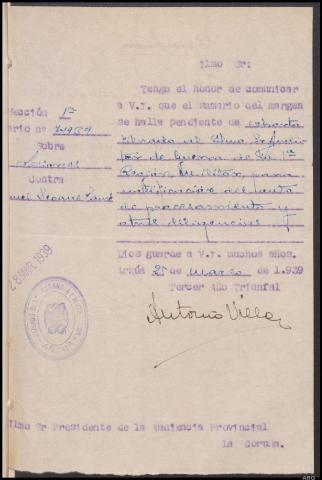 Ilmo Sr:
Tengo el honor de comunicar
a V.I. que el sumario del margen
se halla pendiente de exhorto
librado al Iltmo. Sr. Audi
tor de Guerra de la 1ª
Región Militar, para
notificación del auto
de procesamiento y
otras diligencias
Dios guarde a V.I. muchos años.
de Marzo de 1.939
Tercer Año Triunfal
Antonio Villa
ección 1ª
ario nº
Sobre
Lesiones
Contra
28 MAR. 1939
Ilmo Sr Presidente de la Audiencia Provincial
La Coruña.